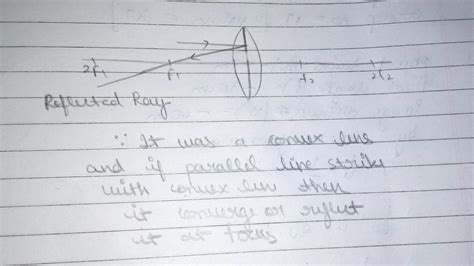 2F₁ F₁ F₂ 2F₂
Reflected Ray
∵ It was a convex lens
and if parallel line strike
with convex lens then
it converge or reflect
it at focus